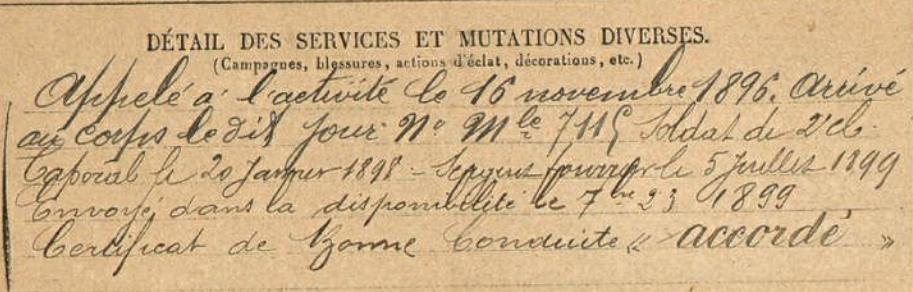 DÉTAIL DES SERVICES ET MUTATIONS DIVERSES.
(Campagnes, blessures, actions d'éclat, décorations, etc.)
Appelé à l'activité le 16 novembre 1896. Arrivé
au corps le dit jour No Mle Soldat de 2e cl.
Caporal le 20 Janvier 1898 - Sergent fourrier le 5 Juillet 1899
Envoyé dans la disponibilité le 7bre 23 1899
Certificat de Bonne Conduite « accordé »